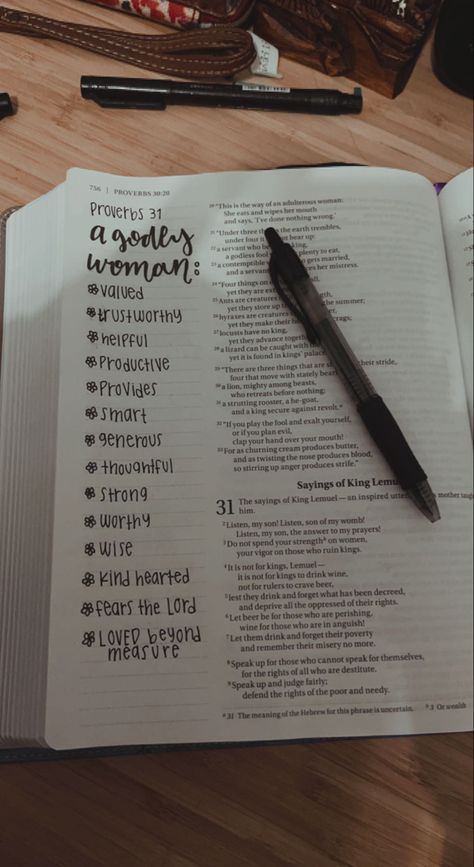 756 | PROVERBS 30:20
Proverbs 31
a godly
woman:
valued
trustworthy
helpful
Productive
Provides
smart
generous
thoughtful
strong
worthy
wise
kind hearted
fears the Lord
LOVED beyond
measure
20 “This is the way of an adulterous woman:
She eats and wipes her mouth
and says, ‘I’ve done nothing wrong.’
21 “Under three the earth trembles,
under four it bear up:
22 a servant who king,
a godless fool plenty to eat,
23 a contemptible gets married,
and a servant es her mistress.
24 “Four things on
yet they are
25 Ants are creatures
yet they store up the summer;
26 hyraxes are creatures
yet they make their crags;
27 locusts have no king,
yet they advance
28 a lizard can be caught with
yet it is found in kings’
29 “There are three things that are their stride,
four that move with stately
30 a lion, mighty among beasts,
who retreats before nothing;
31 a strutting rooster, a he-goat,
and a king secure against revolt.
32 “If you play the fool and exalt yourself,
or if you plan evil,
clap your hand over your mouth!
33 For as churning cream produces butter,
and as twisting the nose produces blood,
so stirring up anger produces strife.”
Sayings of King
31 The sayings of King Lemuel — an inspired mother
him.
2 Listen, my son! Listen, son of my womb!
Listen, my son, the answer to my prayers!
3 Do not spend your strength on women,
your vigor on those who ruin kings.
4 It is not for kings, Lemuel —
it is not for kings to drink wine,
not for rulers to crave beer,
5 lest they drink and forget what has been decreed,
and deprive all the oppressed of their rights.
6 Let beer be for those who are perishing,
wine for those who are in anguish!
7 Let them drink and forget their poverty
and remember their misery no more.
8 Speak up for those who cannot speak for themselves,
for the rights of all who are destitute.
9 Speak up and judge fairly;
defend the rights of the poor and needy.
31 The meaning of the Hebrew for this phrase is uncertain. 3 Or wealth